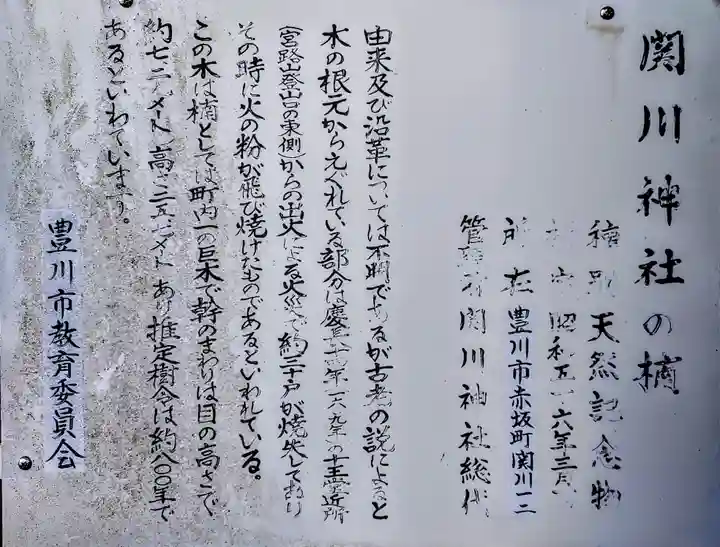 関川神社の楠
種別 天然記念物
指定 昭和五十六年三月
所在 豊川市赤坂町関川一二
管理者 関川神社総代
由来及び沿革については不明であるが古老の説によると
木の根元からえぐれている部分は慶長十四年一六〇九年の十王堂近所
(宮路山登山口の東側)からの出火による火災で約三十戸が焼失しており
その時に火の粉が飛び焼けたものであるといわれている。
この木は楠としては町内一の巨木で幹のまわりは目の高さで
約七・二メートル 高さ二五・七メートル あり推定樹令は約八〇〇年で
あるといわています。
豊川市教育委員会